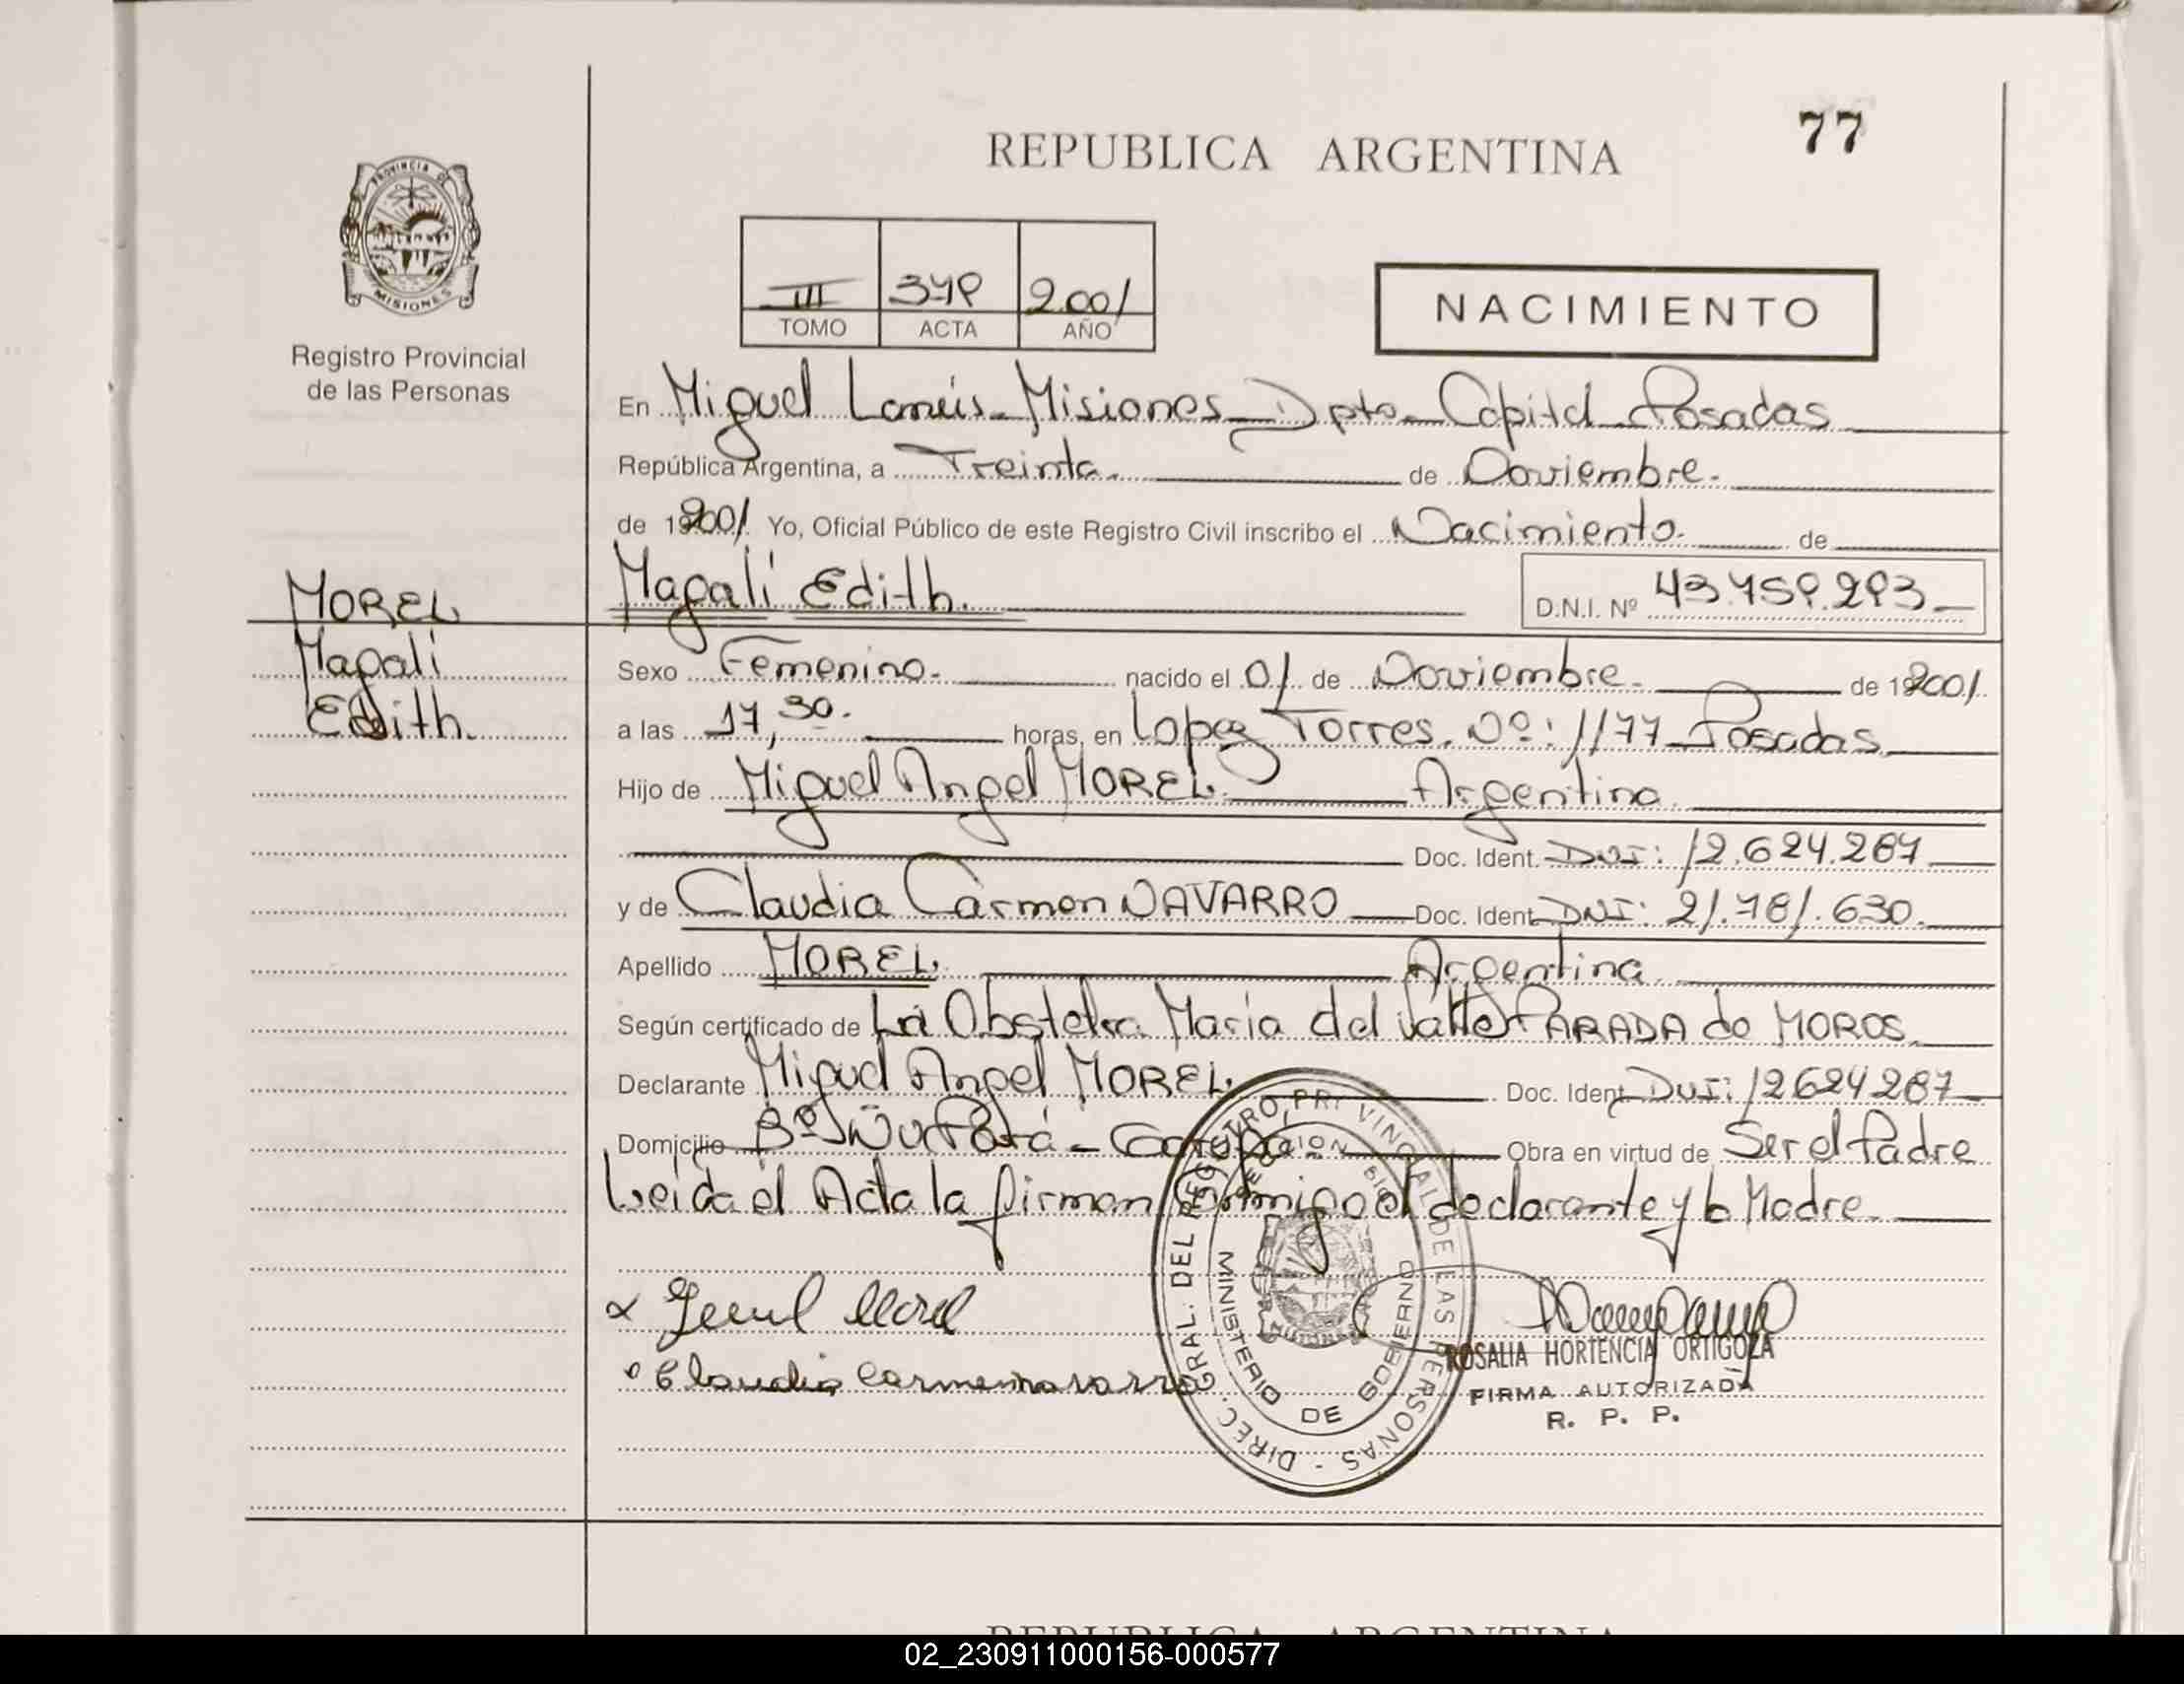 77
REPUBLICA ARGENTINA
PROVINCIA DE MISIONES
Registro Provincial
de las Personas
III 379 2.001
TOMO ACTA AÑO
NACIMIENTO
En Miguel Lanús - Misiones - Dpto - Capital - Posadas
República Argentina, a Treinta. de Noviembre.
de 2001 Yo, Oficial Público de este Registro Civil inscribo el Nacimiento. de
Magalí Edith. D.N.I. Nº 43.759.293
MOREL
Magalí
Edith.
Sexo Femenino. nacido el 01 de Noviembre. de 2001
a las 17,30. horas, en Lopez Torres. Nº: 1177 - Posadas
Hijo de Miguel Angel MOREL. Argentina
Doc. Ident. DNI: 12.624.287
y de Claudia Carmen NAVARRO Doc. Ident. DNI: 21.781.630.
Apellido MOREL. Argentina.
Según certificado de La Obstetra María del Valle PARADA de MOROS.
Declarante Miguel Angel MOREL. Doc. Ident. DNI: 12624287
Domicilio Bº Ñu Porá - Garupá Obra en virtud de Ser el Padre
Leída el Acta la firman Conmigo el declarante y la Madre.
Morel
Claudia Carmen Navarro
DIREC. GRAL. DEL REGISTRO PROVINCIAL DE LAS PERSONAS -
MINISTERIO DE GOBIERNO
ROSALIA HORTENCIA ORTIGOZA
FIRMA AUTORIZADA
R. P. P.
REPUBLICA ARGENTINA
02_230911000156-000577